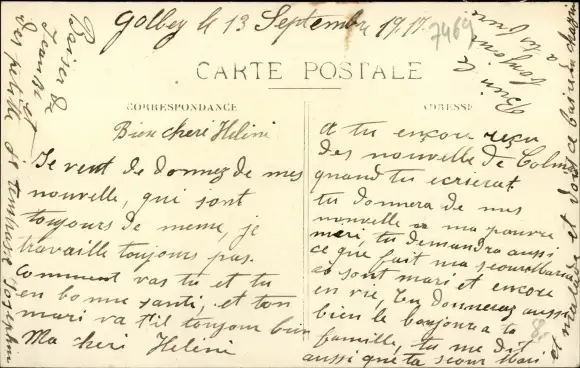 Golbey le 13 Septembre 1917
7469
CARTE POSTALE
CORRESPONDANCE
ADRESSE
Bien chere Helini
Je vent de donnez de mes
nouvelle, qui sont
toujours de meme, je
travaille toujours pas.
Comment vas tu et tu
en bonne santi, et ton
mari va t'il toujour bien
Ma cheri Helini
a tu encour reçu
des nouvelle de Colm
quand tu ecrierat
tu donnera de mes
nouvelle a ma pauvre
meri, tu demandra aussi
ce que fait ma sœur Maria
sont mari et encore
en vie, tu donneraz aussi
bien le bonjour a ta
famille, tu me dit
aussi que ta sœur Mari
et malade et
Baiser de
Jeanne et
Josephine
Bien le
bonjour
a